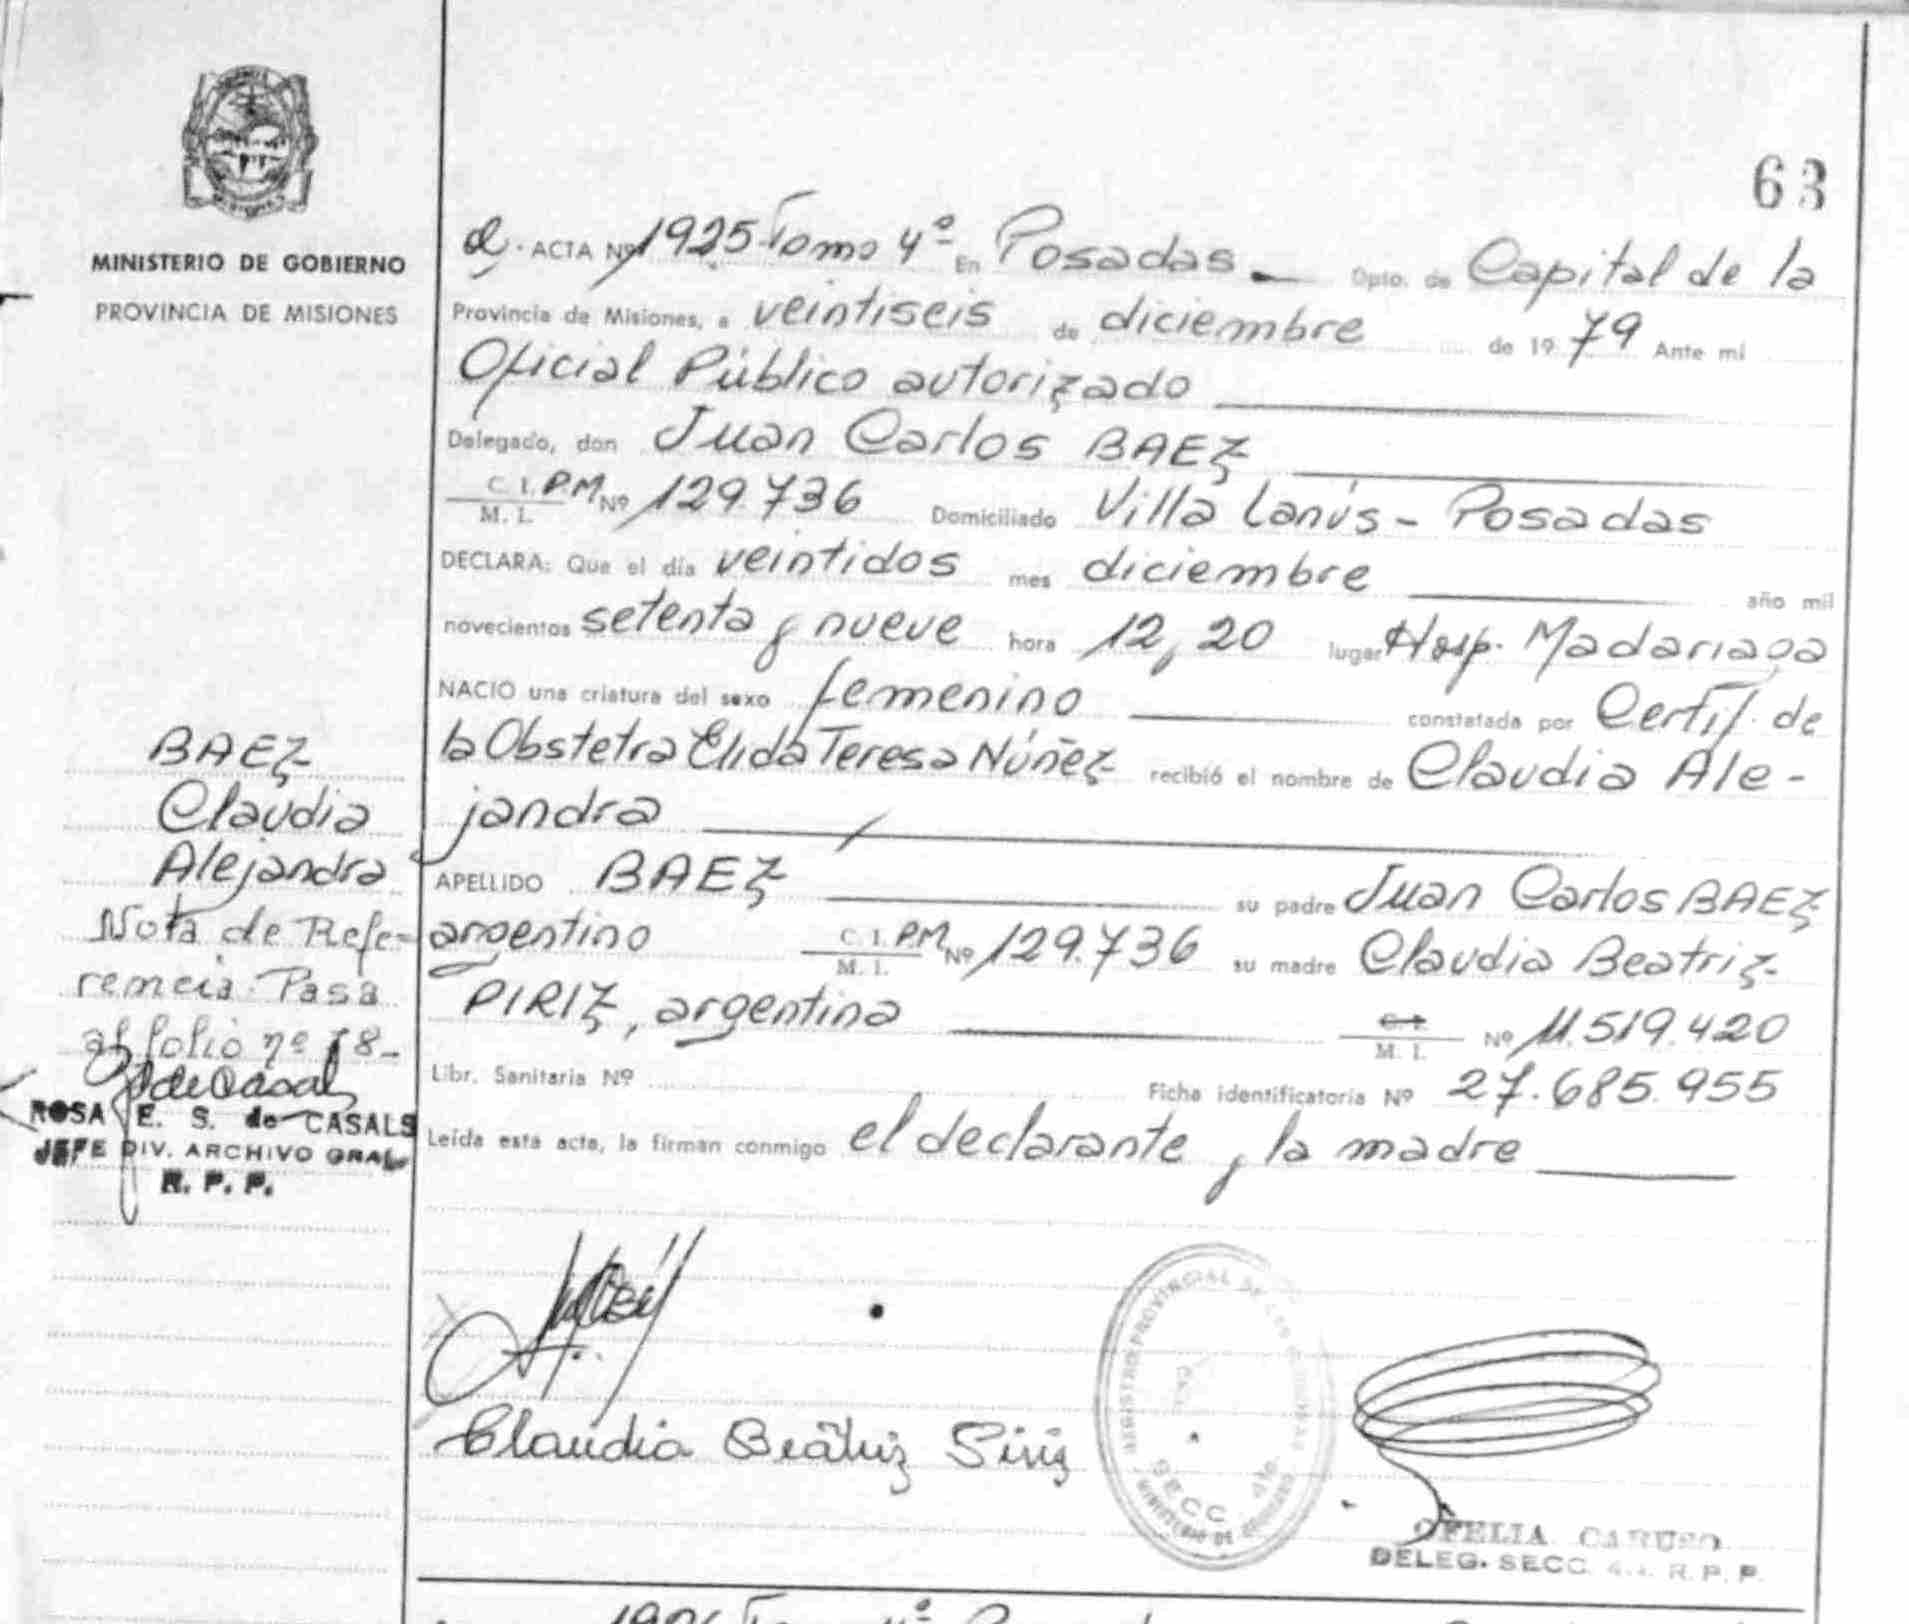 63
MINISTERIO DE GOBIERNO
PROVINCIA DE MISIONES
ACTA Nº 1925 Tomo 4º En Posadas Dpto. de Capital de la
Provincia de Misiones, a veintiseis de diciembre de 1979 Ante mi
Oficial Público autorizado
Delegado, don Juan Carlos BAEZ
C. I. P.M Nº 129.736 Domiciliado Villa Lanús - Posadas
M. I.
DECLARA: Que el día veintidos mes diciembre año mil
novecientos setenta y nueve hora 12,20 lugar Hosp. Madariaga
NACIO una criatura del sexo femenino constatada por Certif. de
la Obstetra Elida Teresa Núñez recibió el nombre de Claudia Ale-
jandra
APELLIDO BAEZ su padre Juan Carlos BAEZ
argentino C. I. P.M Nº 129.736 su madre Claudia Beatriz
M. I.
PIRIZ, argentina C. I. Nº 11.519.420
M. I.
Libr. Sanitaria Nº Ficha identificatoria Nº 27.685.955
Leída esta acta, la firman conmigo el declarante y la madre
BAEZ
Claudia
Alejandra
Nota de Refe-
remcia. Pasa
al folio nº 78-
ROSA E. S. de CASALS
JEFE DIV. ARCHIVO GRAL.
R. P. P.
Claudia Beatriz Piriz
REGISTRO PROVINCIAL DE LAS PERSONAS
SECC. 4ta.
MINISTERIO DE GOBIERNO
OFELIA CARUSO
DELEG. SECC. 4ª R. P. P.